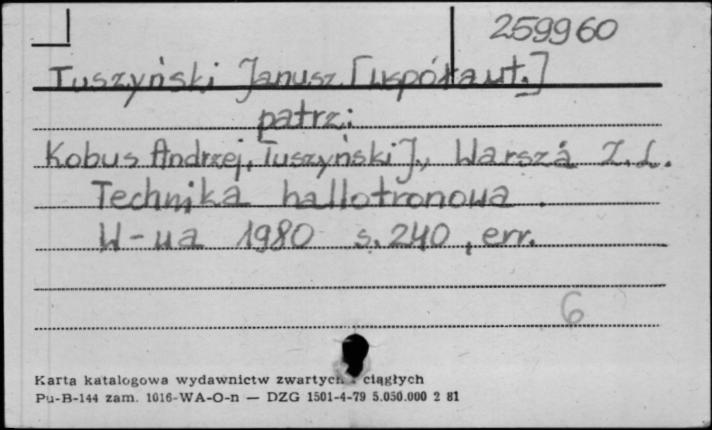 259960
Tuszyński Janusz [współaut.]
patrz:
Kobus Andrzej, Tuszyński J., Warsza Z. L.
Technika hallotronowa.
W-wa 1980 s. 240, err.
6
Karta katalogowa wydawnictw zwartych i ciągłych
Pu-B-144 zam. 1016-WA-O-n — DZG 1501-4-79 5.050.000 2 81